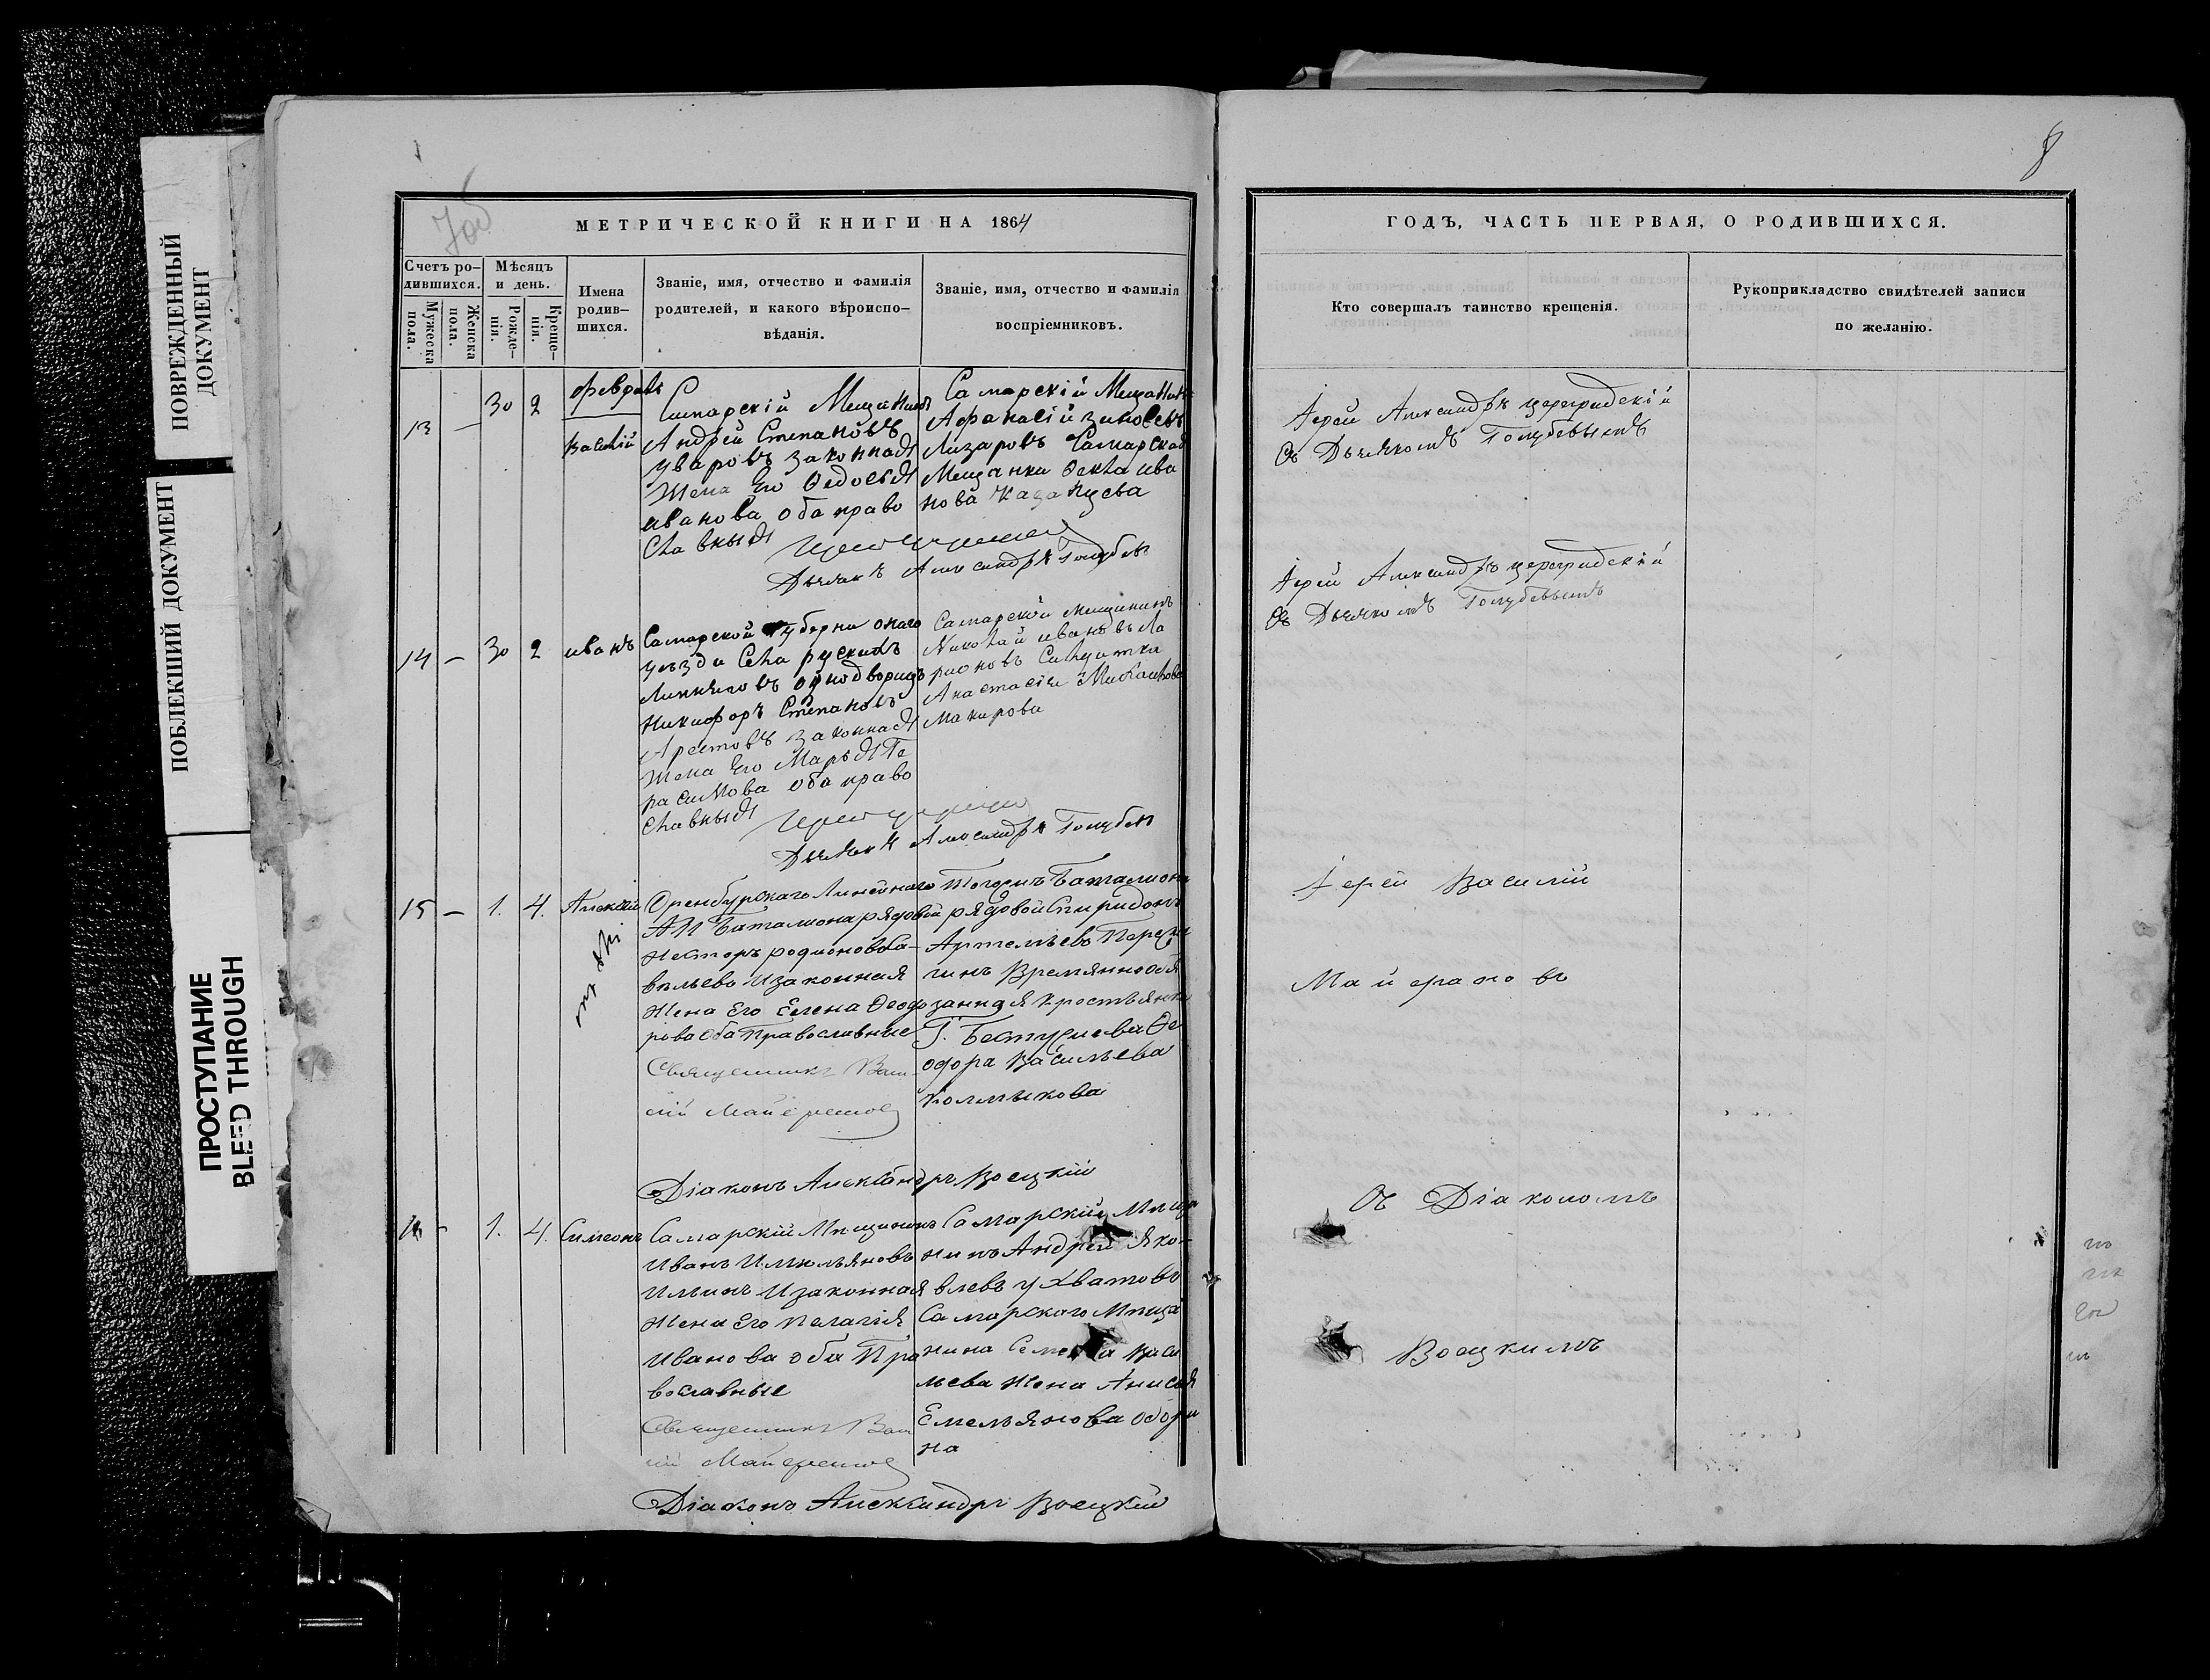 ПОВРЕЖДЕННЫЙ
ДОКУМЕНТ
ПОБЛЕКШИЙ ДОКУМЕНТ
ПРОСТУПАНИЕ
BLEED THROUGH
МЕТРИЧЕСКОЙ КНИГИ НА 1864
Счетъ ро-
дившихся.
Мужеска
пола.
Женска
пола.
Мѣсяцъ
и день.
Рожде-
нія.
Креще-
нія.
Имена
родив-
шихся.
Званіе, имя, отчество и фамилія
родителей, и какого вѣроиспо-
вѣданія.
Званіе, имя, отчество и фамилія
воспріемниковъ.
13 — 30 2
Февраль
Василій
Самарскій Мещанинъ
Андрей Степановъ
Уваровъ законная
Жена Его Ѳедосья
Иванова оба право
славныя
Самарскій Мещанинъ
Афанасій Зиновьевъ
Лизаровъ Самарская
Мещанка Ѳекла Ива
нова Казанцева
Дьячекъ Александръ Голубевъ
14 — 30 2 Иванъ
Самарской Губерни онаго
уѣзда Села рускихъ
Липяговъ однодворецъ
Никифоръ Степановъ
Арестовъ законная
Жена Его Марья Ге
расимова оба право
славныя
Самарской мещанинъ
Николай Ивановъ Ла
рионовъ Солдатка
Анастасія Михаилова
Макирова
Дьячекъ Александръ Голубевъ
15 — 1. 4. Алексѣй
Оренбургскаго Линейнаго
Баталиона рядовой
Несторъ родионовъ Са-
вельевъ И законная
Жена Его Елена Ѳеодо
рова Оба Православные
Священникъ Васи-
лій
Тогожъ Баталиона
рядовой Спиридонъ
Артемьевъ
Времянно обя
занная крестьянка
Г. Бестужева Ѳе
одора Васильева
Колмыкова
Діаконъ Александръ Воецкій
16 — 1. 4. Симеонъ
Самарскій Мещанинъ
Иванъ Имельяновъ
Ильинъ И законная
Жена Его Пелагія
Иванова оба Пра
вославные
Священникъ Васи
лій
Самарскій Меща
нинъ Андрей Яко-
влевъ Ухватовъ
Самарскаго Меща
нина Семена Васи
льева Жена Анисья
Емельянова
на
Діаконъ Александръ Воецкій
8
ГОДЪ, ЧАСТЬ ПЕРВАЯ, О РОДИВШИХСЯ.
Кто совершалъ таинство крещенія.
Рукоприкладство свидѣтелей записи
по желанію.
Іерей Александръ Цареградскій
Съ Дьячкомъ Голубевымъ
Іерей Александръ Цареградскій
Съ Дьячкомъ Голубевымъ
Іерей Василій
Майерановъ
Съ Діакономъ
Воецкимъ